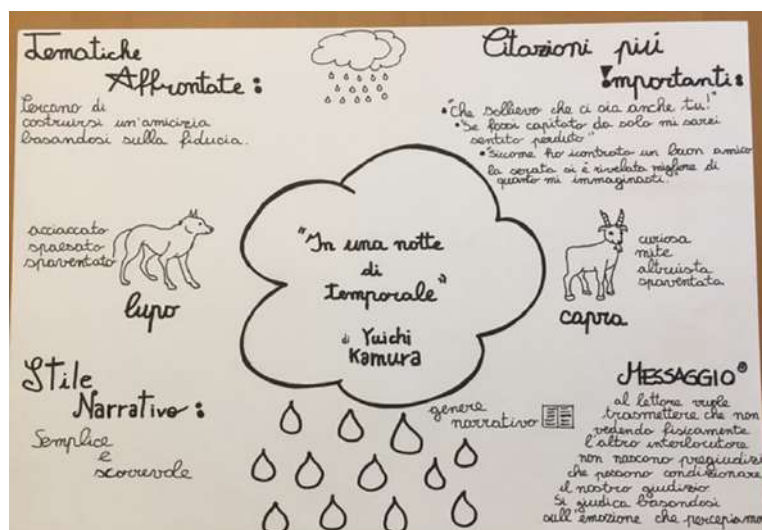 Tematiche
Affrontate:
Cercano di
costruirsi un'amicizia
basandosi sulla fiducia.
Citazioni piú
Importanti:
•"Che sollievo che ci sia anche tu!"
•"Se fossi capitato da solo mi sarei
sentito perduto"
•"Siccome ho icontrato un buon amico
la serata si é rivelata migliore di
quanto mi immaginassi."
acciaccato
spaesato
spaventato
lupo
"In una notte
di
temporale"
di Yuichi
Kamura
curiosa
mite
altruista
spaventata
capra
Stile
Narrativo:
Semplice
e
scorrevole
genere
narrativo
MESSAGGIO:
al lettore vuole
trasmettere che non
vedendo fisicamente
l'altro interlocutore
non nascono pregiudizi
che possono condizionare
il nostro giudizio.
Si giudica basandosi
sull'emozione che percepiamo